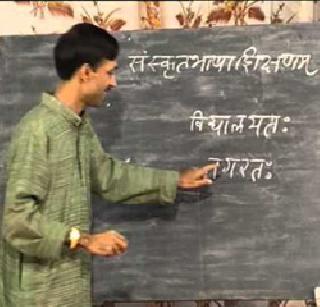 संस्कृतभाषाशिक्षणम्
विद्यालयतः
नगरतः